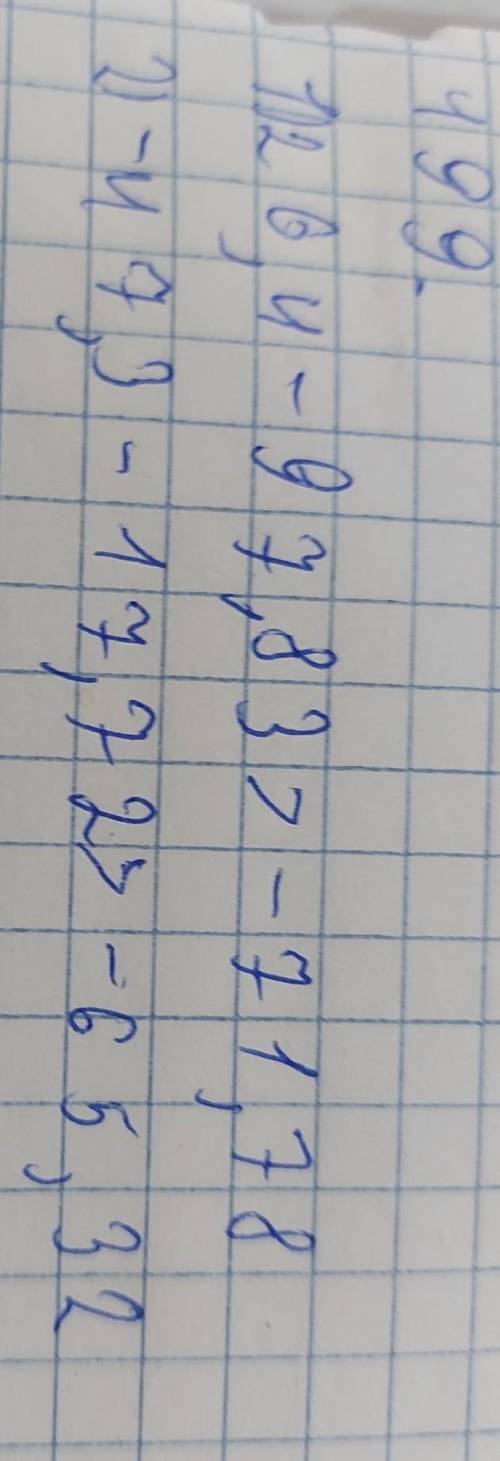 499.
1)26,4-97,83>-71,78
2)-47,3-17,72>-65,32